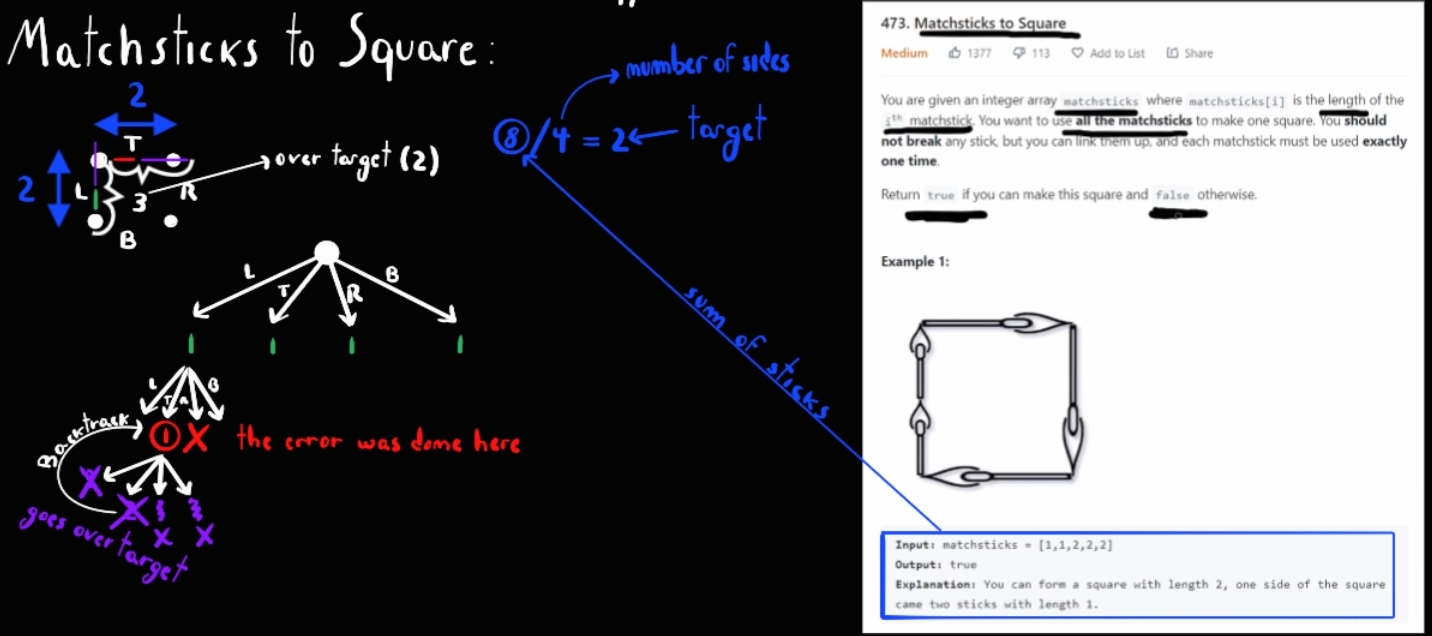 Matchsticks to Square:
2
T
2
L
3
R
B
over target (2)
number of sides
8/4 = 2
target
sum of sticks
L
T
R
B
L
T
R
B
Backtrack
1
X
the error was dome here
X
X
X
X
goes over target
473. Matchsticks to Square
Medium 1377 113 Add to List Share
You are given an integer array matchsticks where matchsticks[i] is the length of the
ith matchstick. You want to use all the matchsticks to make one square. You should
not break any stick, but you can link them up, and each matchstick must be used exactly
one time.
Return true if you can make this square and false otherwise.
Example 1:
Input: matchsticks = [1,1,2,2,2]
Output: true
Explanation: You can form a square with length 2, one side of the square
came two sticks with length 1.